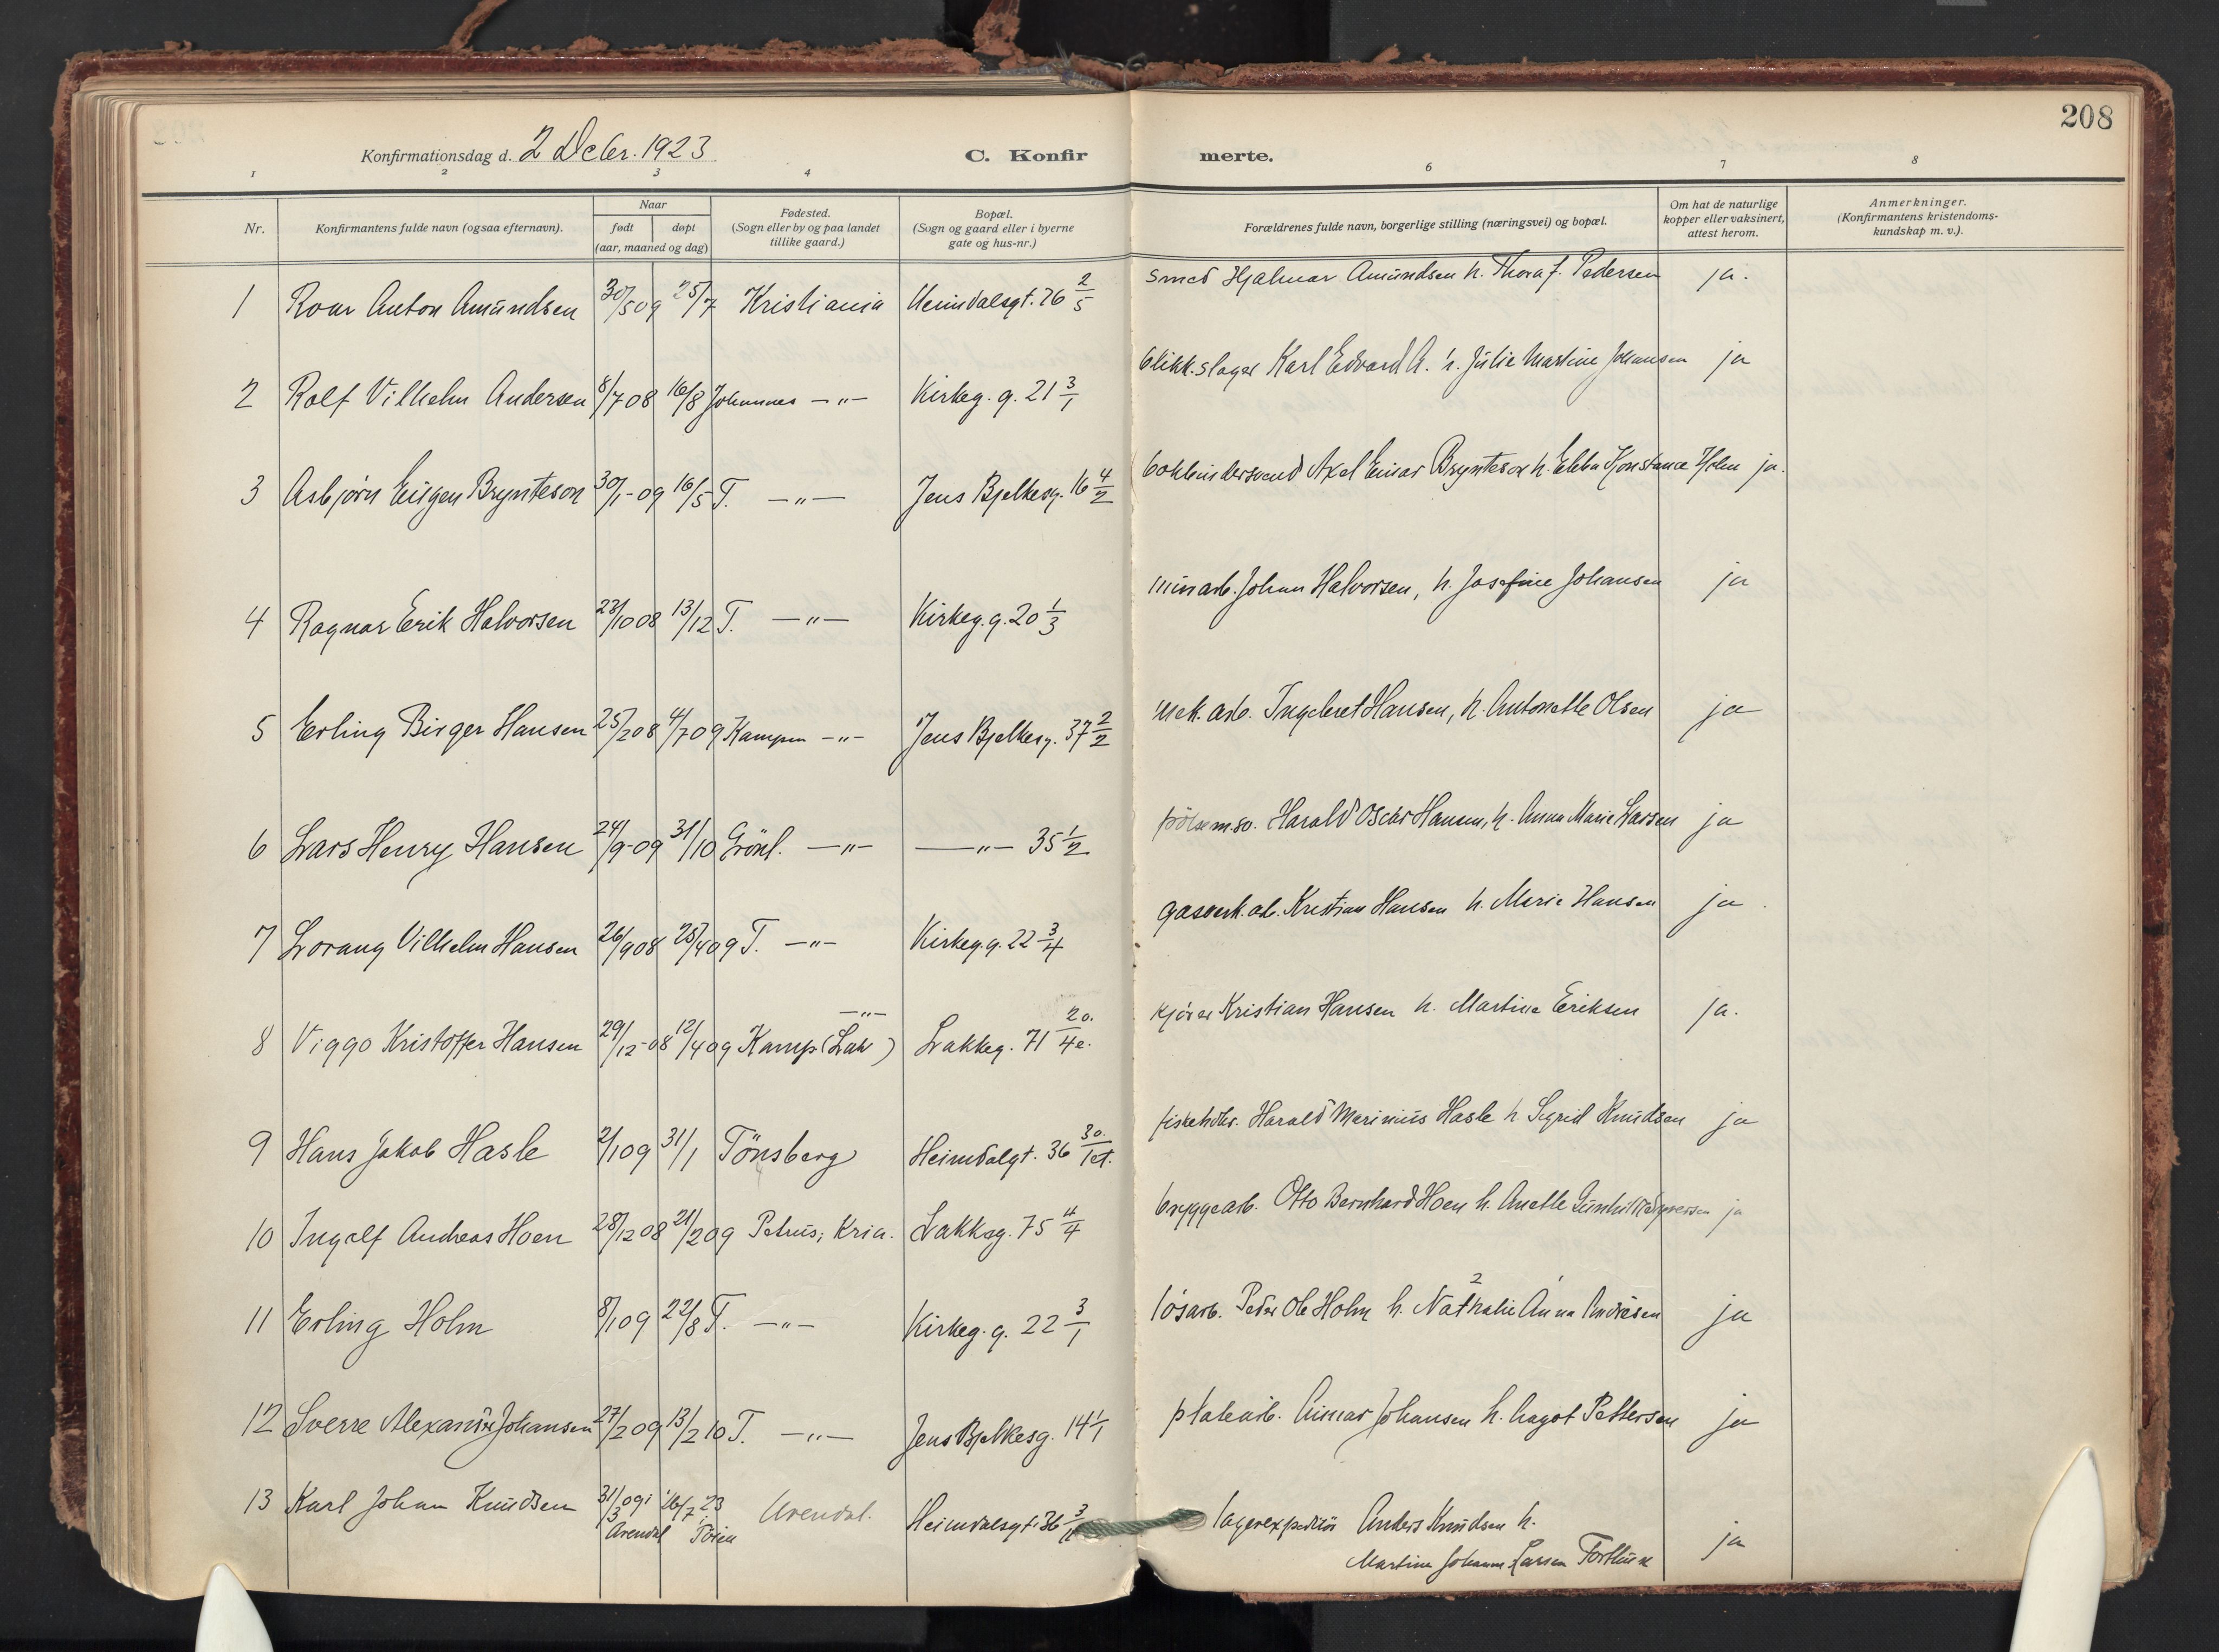 208
Konfirmationsdag d. 2 Debr. 1923 C. Konfirmerte.
1 2 3 4 6 7 8
Nr. Konfirmantens fulde navn (ogsaa efternavn). Naar født døpt (aar, maaned og dag) Fødested. (Sogn eller by og paa landet tillike gaard.) Bopæl. (Sogn og gaard eller i byerne gate og hus-nr.) Forældrenes fulde navn, borgerlige stilling (næringsvei) og bopæl. Om hat de naturlige kopper eller vaksinert, attest herom. Anmerkninger. (Konfirmantens kristendomskundskap m. v.).
1 Roar Anton Amundsen 30/5 09 25/7 Kristiania Heimdalsgt. 26 2/5 smed Hjalmar Amundsen h. Thora f. Pedersen ja.
2 Rolf Vilhelm Andersen 8/7 08 16/8 Johannes —"— Kirkeg. g. 21 3/1 blikk.slager Karl Edvard A. h. Julie Martine Johansen ja
3 Asbjørn Eugen Brynteson 30/1-09 16/5 T. —"— Jens Bjelkesg. 16 4/2 bokbindersvend Axel Einar Brynteson h. Ebba Konstance Holm ja.
4 Ragnar Erik Halvorsen 23/10 08 13/12 T. —"— Kirkeg. g. 20 1/3 murarb. Johan Halvorsen, h. Josefine Johansen ja
5 Erling Birger Hansen 25/2 08 4/7 09 Kampen —"— Jens Bjelkesg. 37 2/2 mek. arb. Ingebret Hansen, h. Antonette Olsen ja
6 Lars Henry Hansen 24/9-09 31/10 Grönl. —"— —"— 35 1/2 Harald Oscar Hansen, h. Anna Marie Larsen ja
7 Lorang Vilhelm Hansen 26/9 08 25/4 09 T. —"— Kirkeg. g. 22 3/4 gasverk. arb. Kristian Hansen h. Marie Hansen ja
8 Viggo Kristoffer Hansen 29/12-08 12/4 09 Kamp (Lak) —"— Lakkeg. 71 2o./4e. kjörer Kristian Hansen h. Martine Eriksen ja.
9 Hans Jakob Hasle 2/1 09 31/1 Tönsberg Heimdalgt. 36 3o./1et. fiskehdlr. Harald Marinius Hasle h Sigrid Knudsen ja
10 Ingolf Andreas Hoen 28/12 08 21/2 09 Petrus, Kria. Lakkeg. 75 4/4 bryggearb. Otto Bernhard Hoen h. Anette ja
11 Erling Holm 8/1 09 22/8 T. —"— Kirkeg. g. 22 3/1 lösarb. Peder Ole Holm h. Nathalie Anna Andresen ja
12 Sverre Alexander Johansen 27/2 09 13/2 10 T. —"— Jens Bjelkesg. 14 1/1 Einar Johansen h. Aagot Pettersen ja
13 Karl Johan Knudsen 31/3 09 i Arendal 16/7 23 i Töien Arendal. Heimdalsgt. 36 3/ lagerexpeditör Anders Knudsen h.
Martine Johanne Larsen ja